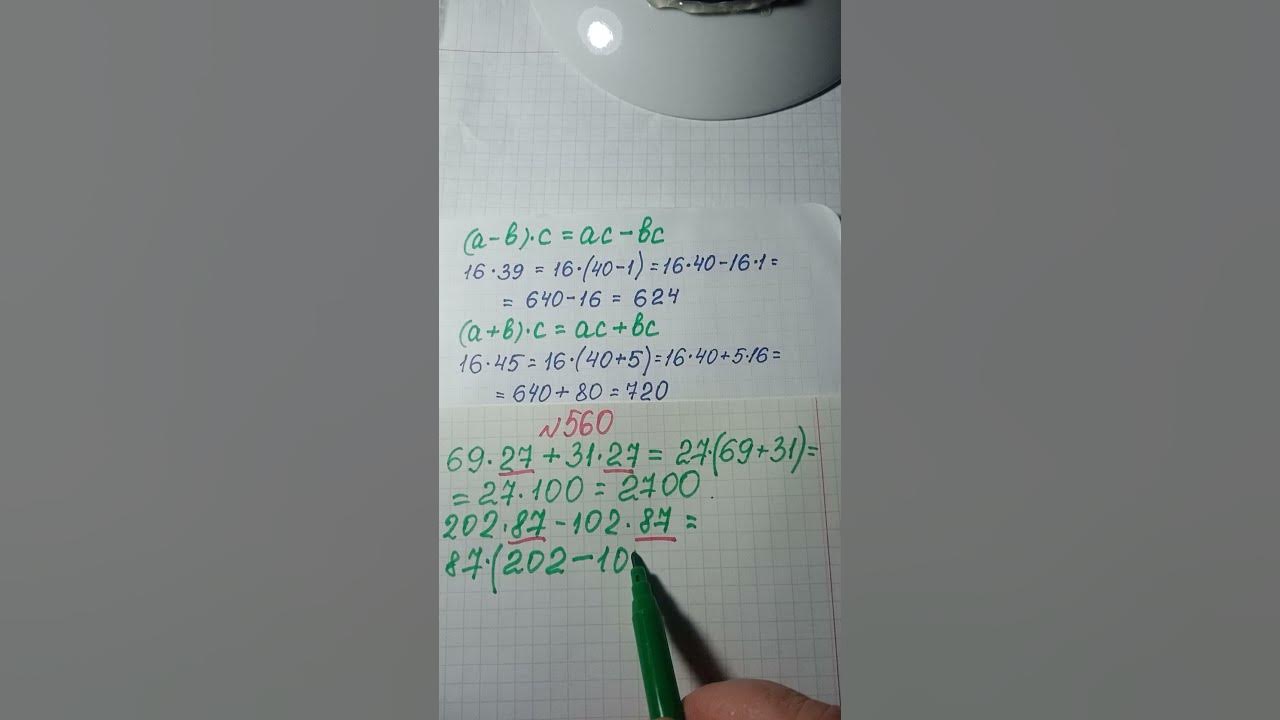 (а-в)·с = ас-вс
16·39 = 16·(40-1) = 16·40-16·1 =
= 640-16 = 624
(а+в)·с = ас+вс
16·45 = 16·(40+5) = 16·40+5·16 =
= 640+80 = 720
№560
69·27 + 31·27 = 27·(69+31) =
= 27·100 = 2700
202·87 - 102·87 =
87·(202-10